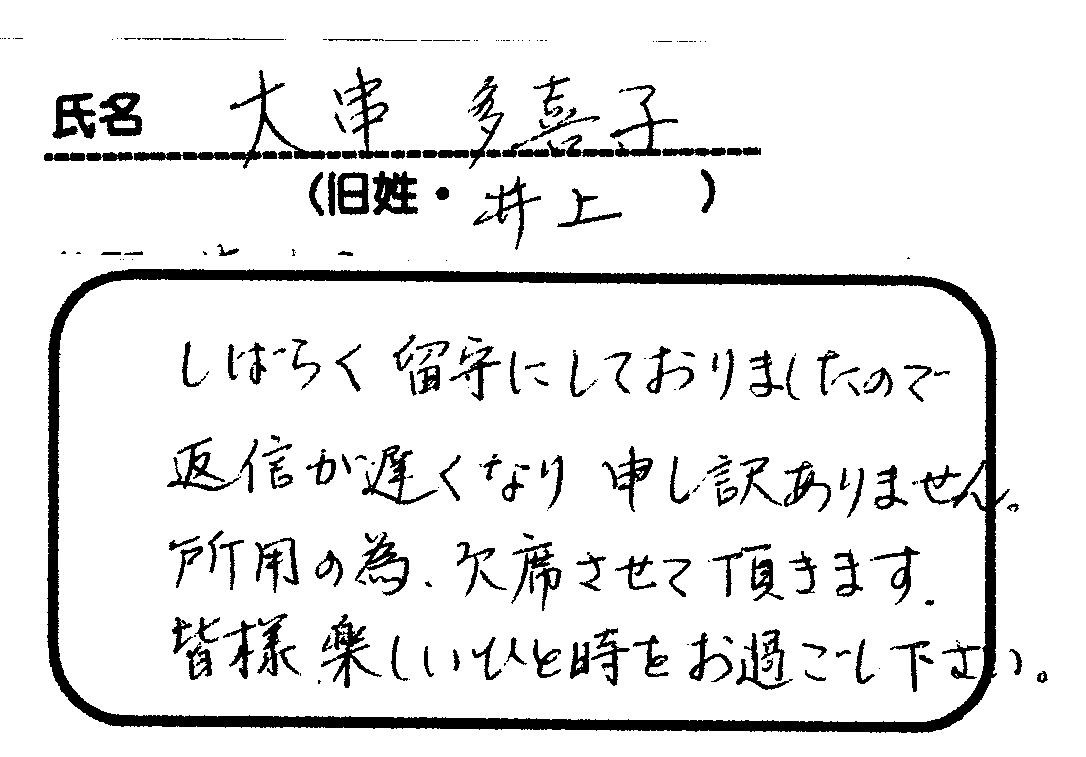 氏名 大串 多喜子
(旧姓・井上 )
しばらく留守にしておりましたので
返信が遅くなり 申し訳ありません。
所用の為、欠席させて頂きます.
皆様 楽しいひと時をお過ごし下さい。